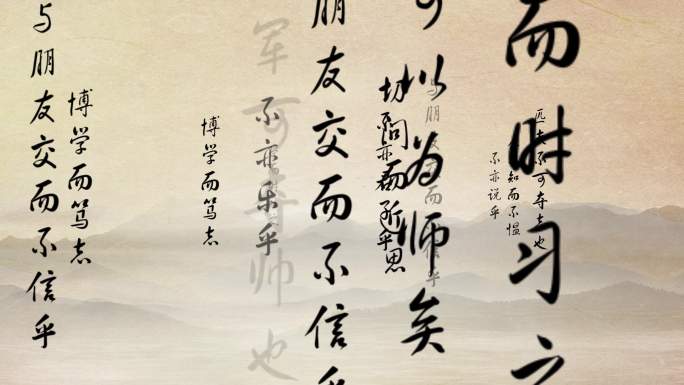 匹夫不可夺志也
而时习之
知而不愠
不亦说乎
可以为师矣
朋友交而不信乎
军可夺帅也
不亦乐乎
博学而笃志
博学而笃志
与朋友交而不信乎